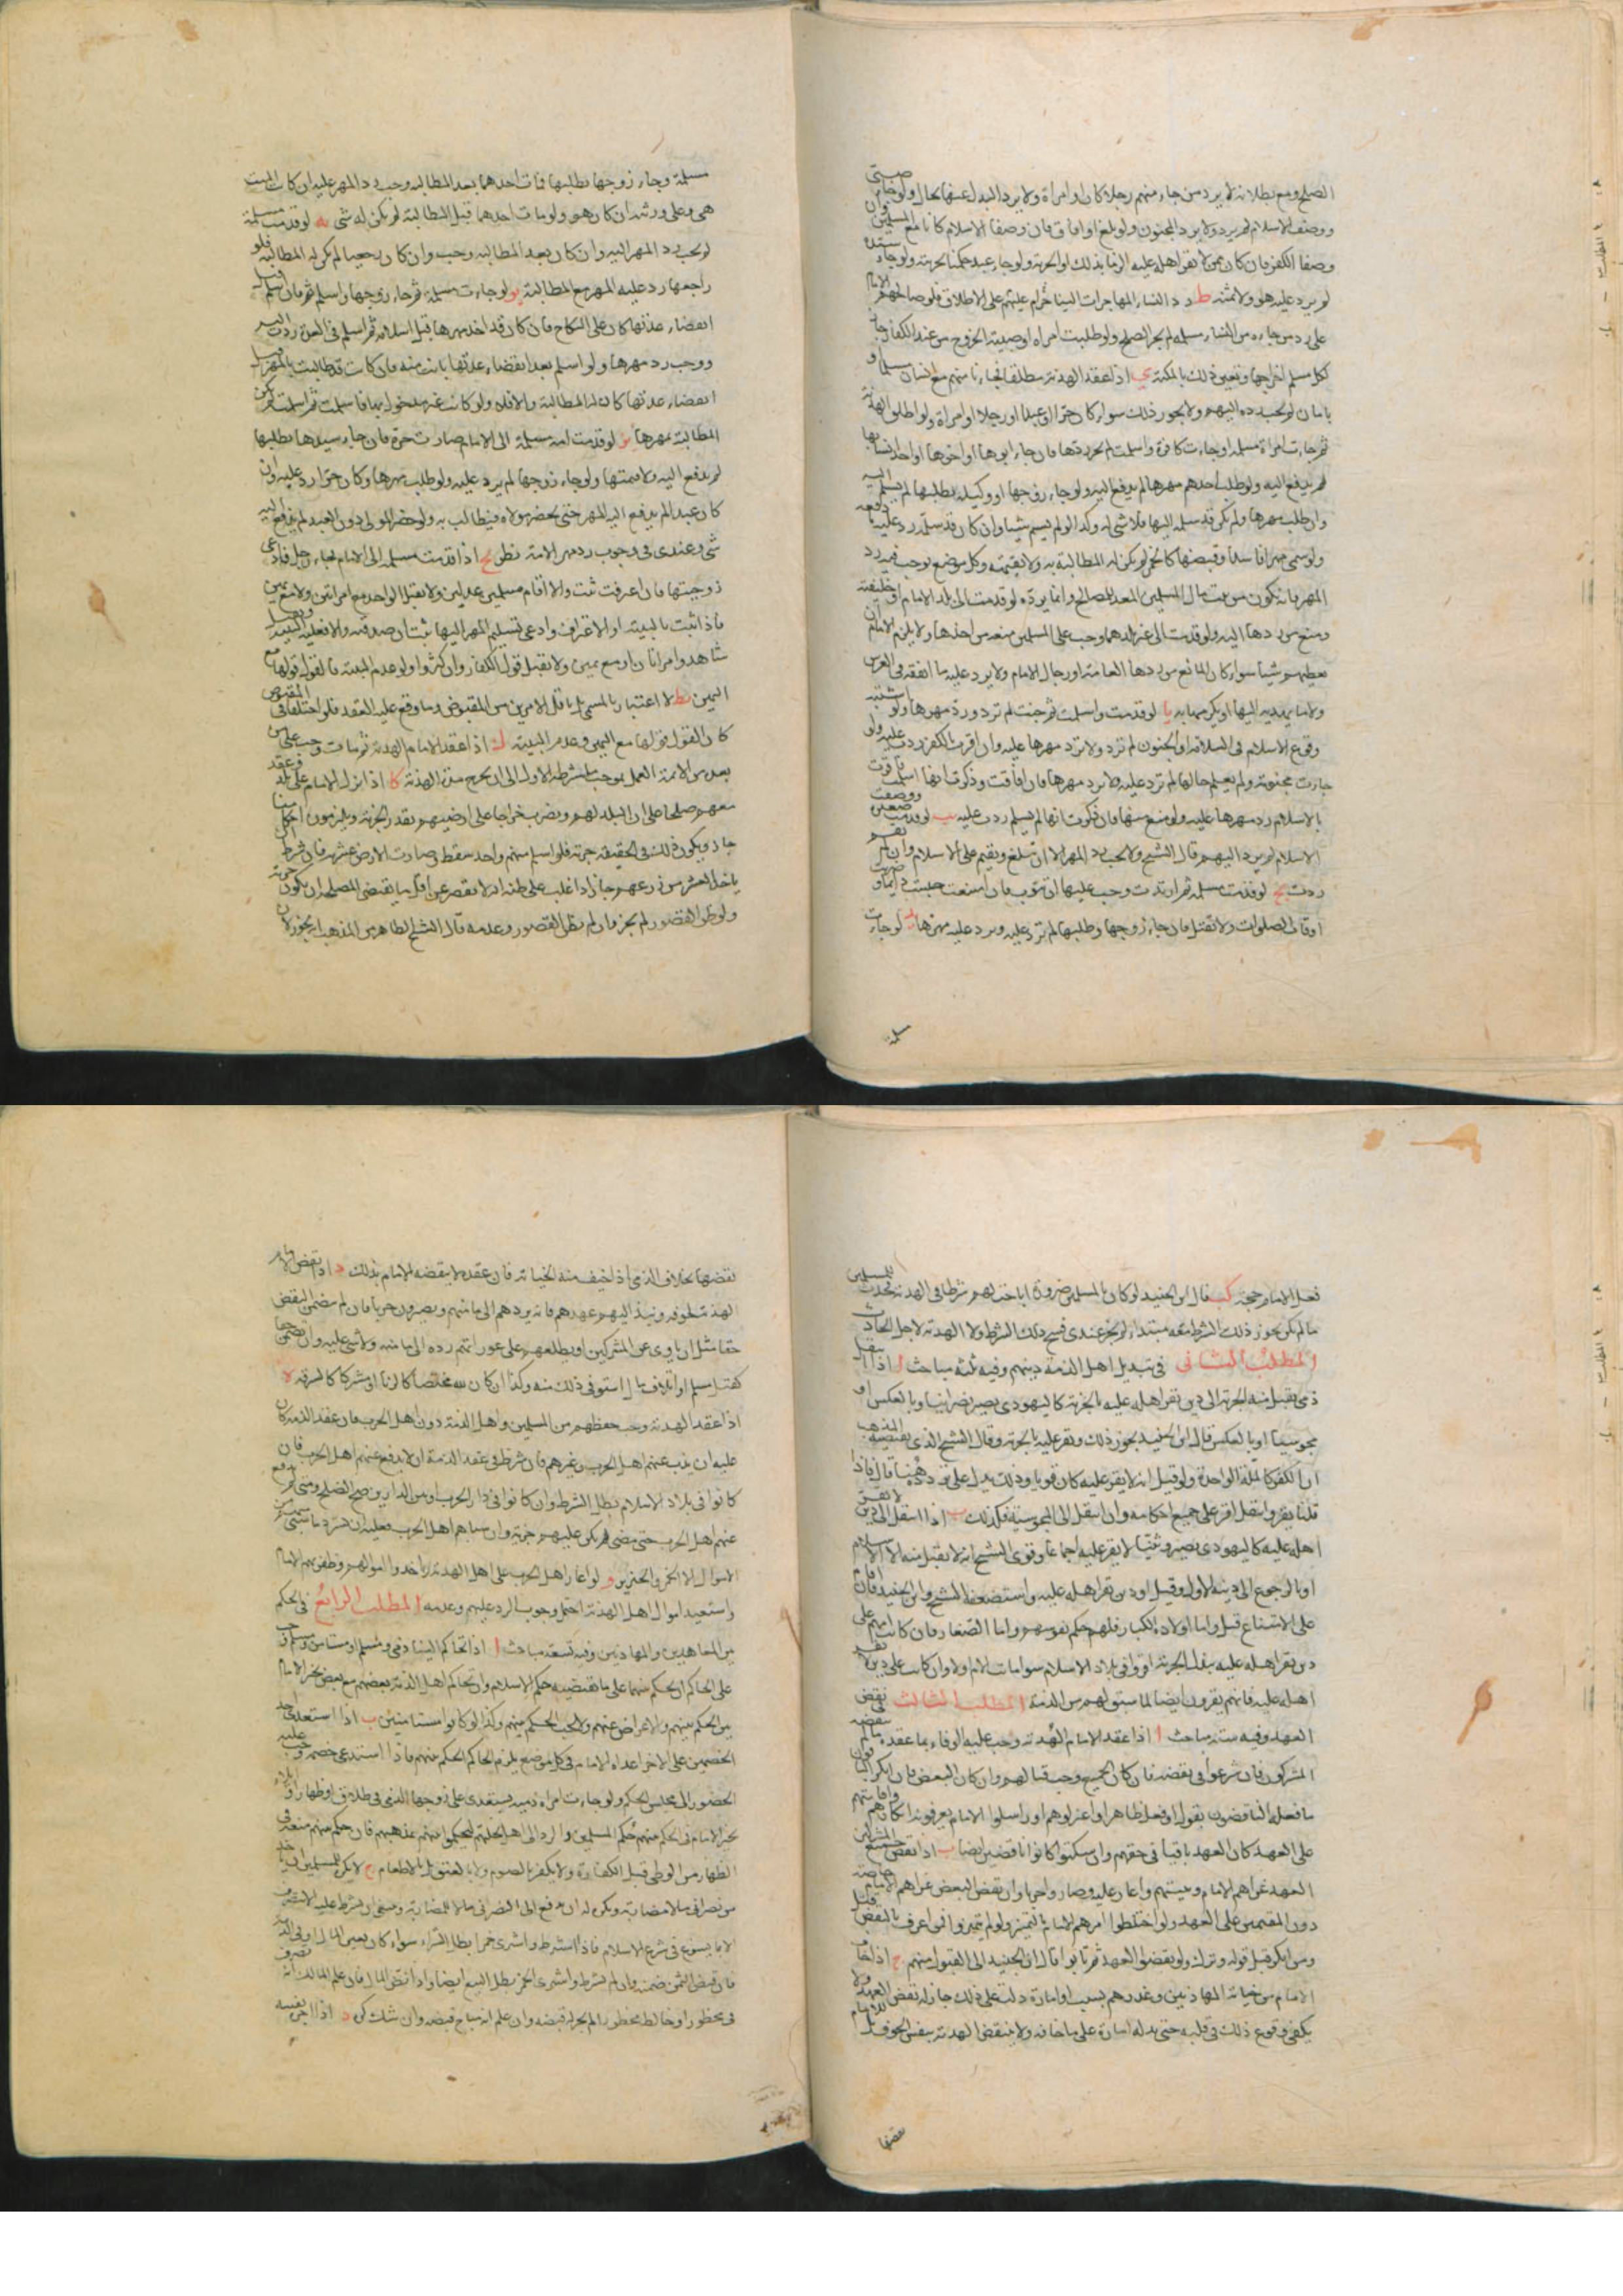 الصلح ومع بطلانه لا يرد من جاء منهم رجلا كان او امراة ولا يرد البدل عنها بحال ولو جاء صبى
ووصف الاسلام لم يرد ولا يرد المجنون ولو بلغ او افاق فان وصفا الاسلام كانا مع المسلمين وان
وصفا الكفر فان كان ممن لا يقر اهله عليه الزمناه بذلك لو الجزية ولو جاء عبد حكمنا بحريته ولو جاء سيده
لم يرد عليه هو ولا ثمنه ط رد النساء المهاجرات الينا حرام عليهم على الاطلاق فلو صالحهم الامام
على رد من جاءه من النساء مسلمة لم يجز الصلح ولو طلبت امراة او صبية الخروج من عند الكفار جاز
لكل مسلم اخراجها وتعين ذلك بالمكنة ى اذا عقد الهدنة مطلقا فجاءنا منهم انسان مسلما او
بامان لم يجب رده اليهم ولا يجوز ذلك سواء كان حرا او عبدا او رجلا او امراة ولو اطلق الهدنة
ثم جاءت امراة مسلمة او جاءت كافرة واسلمت لم يجز ردها فان جاء ابوها او اخوها او احد انسابها
لم يدفع اليه ولو طلب احدهم مهرها لم يدفع اليه ولو جاء زوجها او وكيله بطلبها لم يسلم اليه
وان طلب مهرها ولم يكن قد سلمه اليها فلا شئ له وكذا لو لم يسم شيئا وان كان قد سلمه رد عليه ما دفعه
ولو سمى مهرا فاسدا وقبضها كالخمر لم يكن له المطالبة به ولا بقيمته وكل موضع يوجب فيه رد
المهر فانه يكون من بيت مال المسلمين المعد للمصالح وانما يرده لو قدمت الى بلد الامام او خليفته
ومنع من ردها اليه ولو قدمت الى غير بلدهما وجب على المسلمين منعه من اخذها ولا يلزم الامام ان
يعطيهم شيئا سواء كان المانع من ردها العامة او رجال الامام ولا يرد عليه ما انفقه فى العرس
ولا ما يهديه اليها او يكرمها به يا لو قدمت واسلمت ثم جنت لم ترد ورد مهرها ولو اشتبه
وقوع الاسلام فى السلامة او الجنون لم ترد ولا ترد مهرها عليه وان اقرت بالكفر ردت عليه ولو
جاءت مجنونة ولم يعلم حالها لم ترد عليه ولا يرد مهرها فان افاقت وذكرت انها اسلمت
بالاسلام رد مهرها عليه ولو منع منها فان ذكرت انها لم يسلم ردت عليه يب لو قدمت صغيرة ووصفت
الاسلام لم يرد اليهم قال الشيخ ولا يجب رد المهر الا ان تبلغ وتقيم على الاسلام وان لم تقم
ردت يج لو قدمت مسلمة ثم ارتدت وجب عليها ان تتوب فان امتنعت حبست دائما وضربت
اوقات الصلوات ولا تقتل فان جاء زوجها وطلبها لم ترد عليه ويرد عليه مهرها يد لو جاءت
مسلمة
مسلمة وجاء زوجها بطلبها فمات احدهما بعد المطالبة وجب رد المهر عليه ان كانت الميت
هى وعلى ورثته ان كان هو ولو مات احدهما قبل المطالبة لم يكن له شى يه لو قدمت مسلمة
لم يجب رد المهر اليه وان كان بعد المطالبة وجب وان كان رجعيا لم يكن له المطالبة فلو
راجعها رد عليه المهر مع المطالبة يو لو جاءت مسلمة ثم جاء زوجها واسلم ثم فان اسلم قبل
انقضاء عدتها كان على النكاح فان كان قد اخذ مهرها قبل اسلامه ثم اسلم فى العدة ردت اليه
ووجب رد مهرها ولو اسلم بعد انقضاء عدتها بانت منه فان كانت قد طالبت بالمهر قبل
انقضاء عدتها كان له المطالبة والا فلا ولو كانت غير مدخول بها فاسلمت ثم اسلم لم يكن
المطالبة بمهرها يز لو قدمت امة مسلمة الى الامام صارت حرة فان جاء سيدها بطلبها
لم يدفع اليه ولا قيمتها ولو جاء زوجها لم يرد عليه ولو طلب مهرها وكان حرا رد عليه وان
كان عبدا لم يدفع اليه المهر حتى يحضر مولاه فيطالب به ولو حضر المولى دون العبد لم يدفع اليه
شى وعندى فى وجوب رد مهر الامة نظر يح اذا قدمت مسلمة الى الامام فجاء رجل فادعى
زوجيتها فان اعترفت ثبت والا اقام مسلمين عدلين ولا يقبل الواحد مع امراتين ولا مع يمين
فاذا ثبت بالبينة او الاعتراف وادعى تسليم المهر اليها ثبت ان صدقته والا فعليه البينة ويقبل
شاهد وامراتان او مع يمين ولا يقبل قول الكفار وان كثروا ولو عدم البينة فالقول قولها مع
اليمين يط لا اعتبار بالمسمى بل باقل الامرين من المقبوض وما وقع عليه العقد فلو اختلفا فى المقبوض
كان القول قولها مع اليمين وعدم البينة ك اذا عقد الامام الهدنة ثم مات وجب على من
بعده من الائمة العمل بموجب ما شرطه الاول الى ان يخرج مدة الهدنة كا اذا نزل الامام على بلد وعقد
معهم صلحا على ان البلد لهم ويضرب خراجا على ارضيهم بقدر الجزية ويلزمون احكامنا
جاز ويكون ذلك فى الحقيقة جزية فلو اسلم منهم واحد سقط وصارت الارض عشرية فان شرط ان
ياخذ العشر من زرعهم جاز اذا غلب على ظنه انه لا يقصر عن اقل ما يقتضى المصلحة ان يكون جزية
ولو ظن القصور لم يجز وان لم يظن القصور وعدمه قال الشيخ الظاهر من المذهب انه يجوز لان
فعل الامام حجة كب قال ابن الجنيد لو كان بالمسلمين ضرورة اباحت لهم شرطا فى الهدنة فحدث للمسلمين
ما لم يكن يجوز ذلك الشرط معه مبتداء لم يجز عندى فسخ ذلك الشرط ولا الهدنة لاجل الحادث
المطلب الثانى فى تبديل اهل الذمة دينهم وفيه ثلثة مباحث ا اذا انتقل
ذمى يقبل منه الجزية الى دين يقر اهله عليه بالجزية كاليهودى يصير نصرانيا وبالعكس او
مجوسيا او بالعكس قال ابن الجنيد يجوز ذلك ويقر عليه بالجزية وقال الشيخ الذى يقتضيه المذهب
ان الكفر كالملة الواحدة ولو قيل انه لا يقر عليه كان قويا وذلك يدل على تردده هنا قال فاذا
قلنا يقر وانتقل اقر على جميع احكامه وان انتقل الى المجوسية فكذلك ب اذا انتقل الى دين لا يقر
اهله عليه كاليهودى يصير وثنيا لا يقر عليه اجماعا وقوى الشيخ انه لا يقبل منه الا الاسلام
او الرجوع الى دينه الاول وقيل او دين يقر اهله عليه واستضعفه الشيخ وابن الجنيد فان اقام
على الامتناع قتل واما اولاده الكبار فلهم حكم نفوسهم واما الصغار فان كانت امهم على
دين يقر اهله عليه ببذل الجزية اقر فى بلاد الاسلام سواء ماتت الام او لا وان كانت على دين لا يقر
اهله عليه فانهم يقرون ايضا لما سبق لهم من الذمة المطلب الثالث فى نقض
العهد وفيه ستة مباحث ا اذا عقد الامام الهدنة وجب عليه الوفاء بما عقده ما لم ينقضه
المشركون فان شرعوا فى نقضه فان كان الجميع وجب قتالهم وان كان البعض فان انكر الباقون
ما فعله الناقضون بقول او فعل ظاهر او اعتزلوهم او راسلوا الامام يعرفونه انكارهم واقامتهم
على العهد كان العهد باقيا فى حقهم وان سكتوا كانوا ناقضين ايضا ب اذا نقض جميع المشركين
العهد غزاهم الامام وبيتهم واغار عليهم وصاروا حربا وان نقض البعض غزاهم الامام خاصة
دون المقيمين على العهد ولو اختلطوا امرهم الامام بالتميز ولو لم يتميزوا فمن اعترف بالنقض قتل
ومن انكر قبل قوله وترك ولو نقضوا العهد ثم تابوا قال ابن الجنيد الى القبول منهم ج اذا خاف
الامام من خيانة المهادنين وغدرهم بسبب او امارة دلت على ذلك جاز له نقض العهد ولا
يكفى وقوع ذلك فى قلبه حتى يدله امارة على ما خافه ولا ينتقض الهدنة بنفس الخوف بل للامام
نقضها
نقضها بخلاف الذمى اذا خيف منه الخيانة فان عقده لا ينقضه الامام بذلك د اذا نقض الامام
الهدنة لخوفه ونبذ اليهم عهدهم فانه يردهم الى مامنهم ويصيرون حربا فان لم يتضمن النقض
حقا مثل ان ياوى عين المشركين او يطلعهم على عوراتهم رده الى مامنه ولا شئ عليه وان تضمن حقا
كقتل مسلم او اتلاف مال استوفى ذلك منه وكذا ان كان لله مختصا كالزنا او مشتركا كالسرقة ه
اذا عقد الهدنة وجب حفظهم من المسلمين واهل الذمة دون اهل الحرب فان عقد الذمة كان
عليه ان يذب عنهم اهل الحرب وغيرهم فان شرط فى عقد الذمة ان لا يدفع عنهم اهل الحرب فان
كانوا فى بلاد الاسلام بطل الشرط وان كانوا فى دار الحرب او بين الدارين صح الصلح ومتى لم يدفع
عنهم اهل الحرب حتى مضى لم يكن عليهم جزية وان سباهم اهل الحرب فعليه ان يسترد ما سبى منهم من
الاموال الا الخمر والخنزير و لو اغار اهل الحرب على اهل الهدنة واخذوا اموالهم وظفر بهم الامام
واستعيد اموال اهل الهدنة احتمل وجوب الرد عليهم وعدمه المطلب الرابع فى الحكم
بين المعاهدين والمهادنين وفيه تسعة مباحث ا اذا تحاكم الينا ذمى ومسلم او مستامن ومسلم وجب
على الحاكم ان يحكم بينهما على ما يقتضيه حكم الاسلام وان تحاكم اهل الذمة بعضهم مع بعض تخير الامام
بين الحكم بينهم والاعراض عنهم ولا يجب الحكم بينهم وكذا لو كانوا مستامنين ب اذا استعدى احد
الخصمين على الاخر اعداه الامام فى كل موضع يلزم الحاكم الحكم بينهم فاذا استدعى خصمه وجب عليه
الحضور الى مجلس الحكم ولو جاءت امراة ذمية يستعدى على زوجها الذمى فى طلاق او ظهار او ايلاء
تخير الامام فى الحكم بينهم حكم المسلمين والرد الى اهل نحلتهم ليحكموا بينهم بمذهبهم فان حكم بينهم منعه فى
الظهار من الوطى قبل الكفارة ولا يكفر بالصوم ولا بالعتق بل بالاطعام ج لا يكره للمسلم ان ياخذ
من نصرانى مالا مضاربة ويكره له ان يدفع الى النصرانى مالا مضاربة وينبغى ان يشترط عليه الا يتصرف
الا بما يسوغ فى شرع الاسلام فاذا اشترط واشترى خمرا بطل الشراء سواء كان بعين المال او فى الذمة
فان قبض الثمن ضمنه وان لم يشترط واشترى الخمر بطل البيع ايضا واذا نض المال فان علم المالك انه تصرف
فى محظور او خالط محظورا لم يجز له قبضه وان علم انه مباح قبضه وان شك كره د اذا اجر نفسه